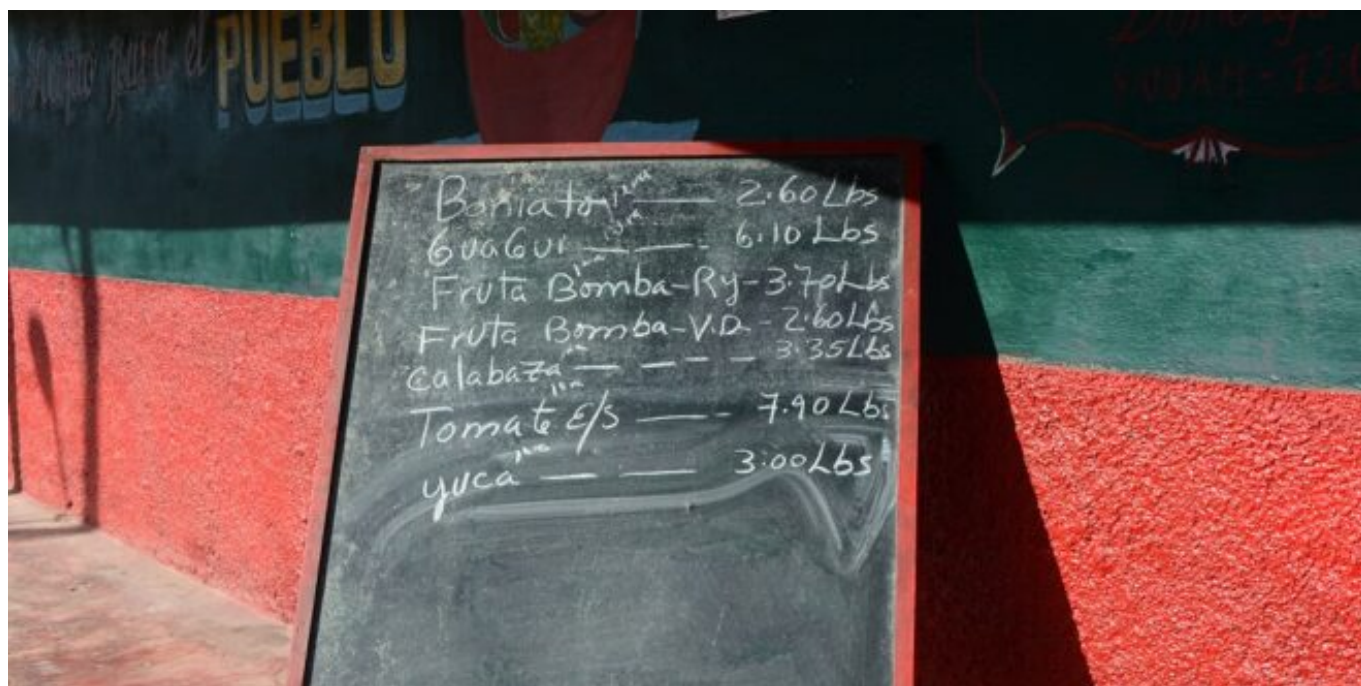 para el PUEBLO
Domingo
9:00AM - 12:
Boniato 1era — 2.60 Lbs
GuaGui 1era — — 6.10 Lbs
Fruta Bomba - Ry - 3.70 Lbs
Fruta Bomba - V.D. - 2.60 Lbs
Calabaza — — — — 3.35 Lbs
Tomate E/S — - 7.90 Lbs
yuca — — — 3.00 Lbs